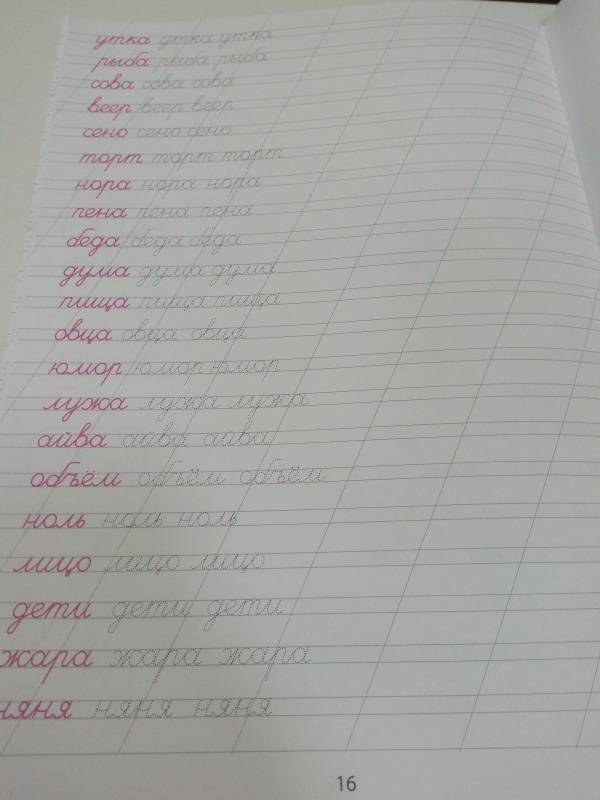 утка утка утка
рыба рыба рыба
сова сова сова
веер веер веер
сено сено сено
торт торт торт
нора нора нора
пена пена пена
беда беда беда
дума дума дума
пища пища пища
овца овца овца
юмор юмор юмор
лужа лужа лужа
айва айва айва
объём объём объём
ноль ноль ноль
лицо лицо лицо
дети дети дети
жара жара жара
няня няня няня
16